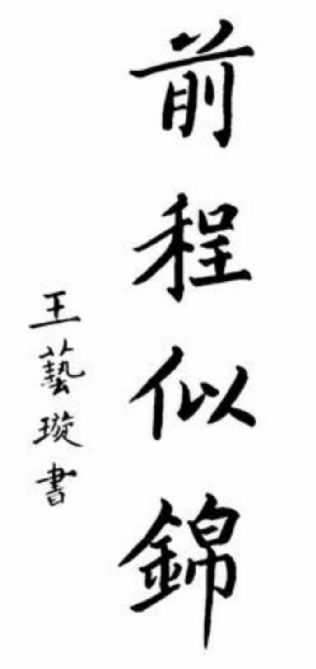 前程似錦
王藝璇書